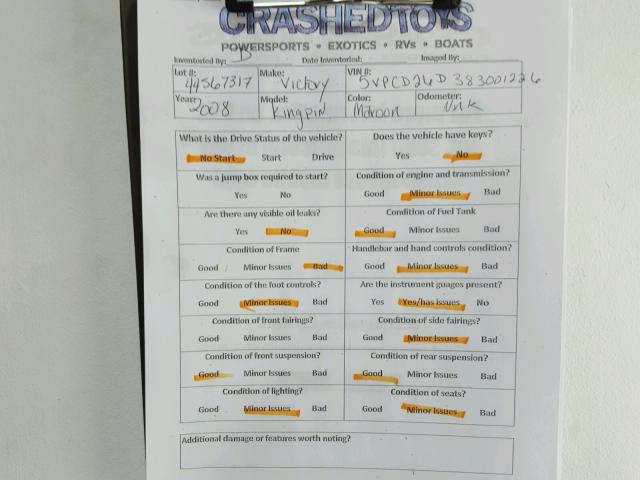 CRASHEDTOYS
POWERSPORTS • EXOTICS • RVs • BOATS
Inventoried By: Date Inventoried: Imaged By:
Lot #: 44567317 Make: Victory VIN #: 5VPCD26D383001226
Year: 2008 Model: Kingpin Color: Maroon Odometer: Unk
What is the Drive Status of the vehicle? Does the vehicle have keys?
No Start Start Drive Yes No
Was a jump box required to start? Condition of engine and transmission?
Yes No Good Minor Issues Bad
Are there any visible oil leaks? Condition of Fuel Tank
Yes No Good Minor Issues Bad
Condition of Frame Handlebar and hand controls condition?
Good Minor Issues Bad Good Minor Issues Bad
Condition of the foot controls? Are the instrument guages present?
Good Minor Issues Bad Yes Yes/has issues No
Condition of front fairings? Condition of side fairings?
Good Minor Issues Bad Good Minor Issues Bad
Condition of front suspension? Condition of rear suspension?
Good Minor Issues Bad Good Minor Issues Bad
Condition of lighting? Condition of seats?
Good Minor Issues Bad Good Minor Issues Bad
Additional damage or features worth noting?